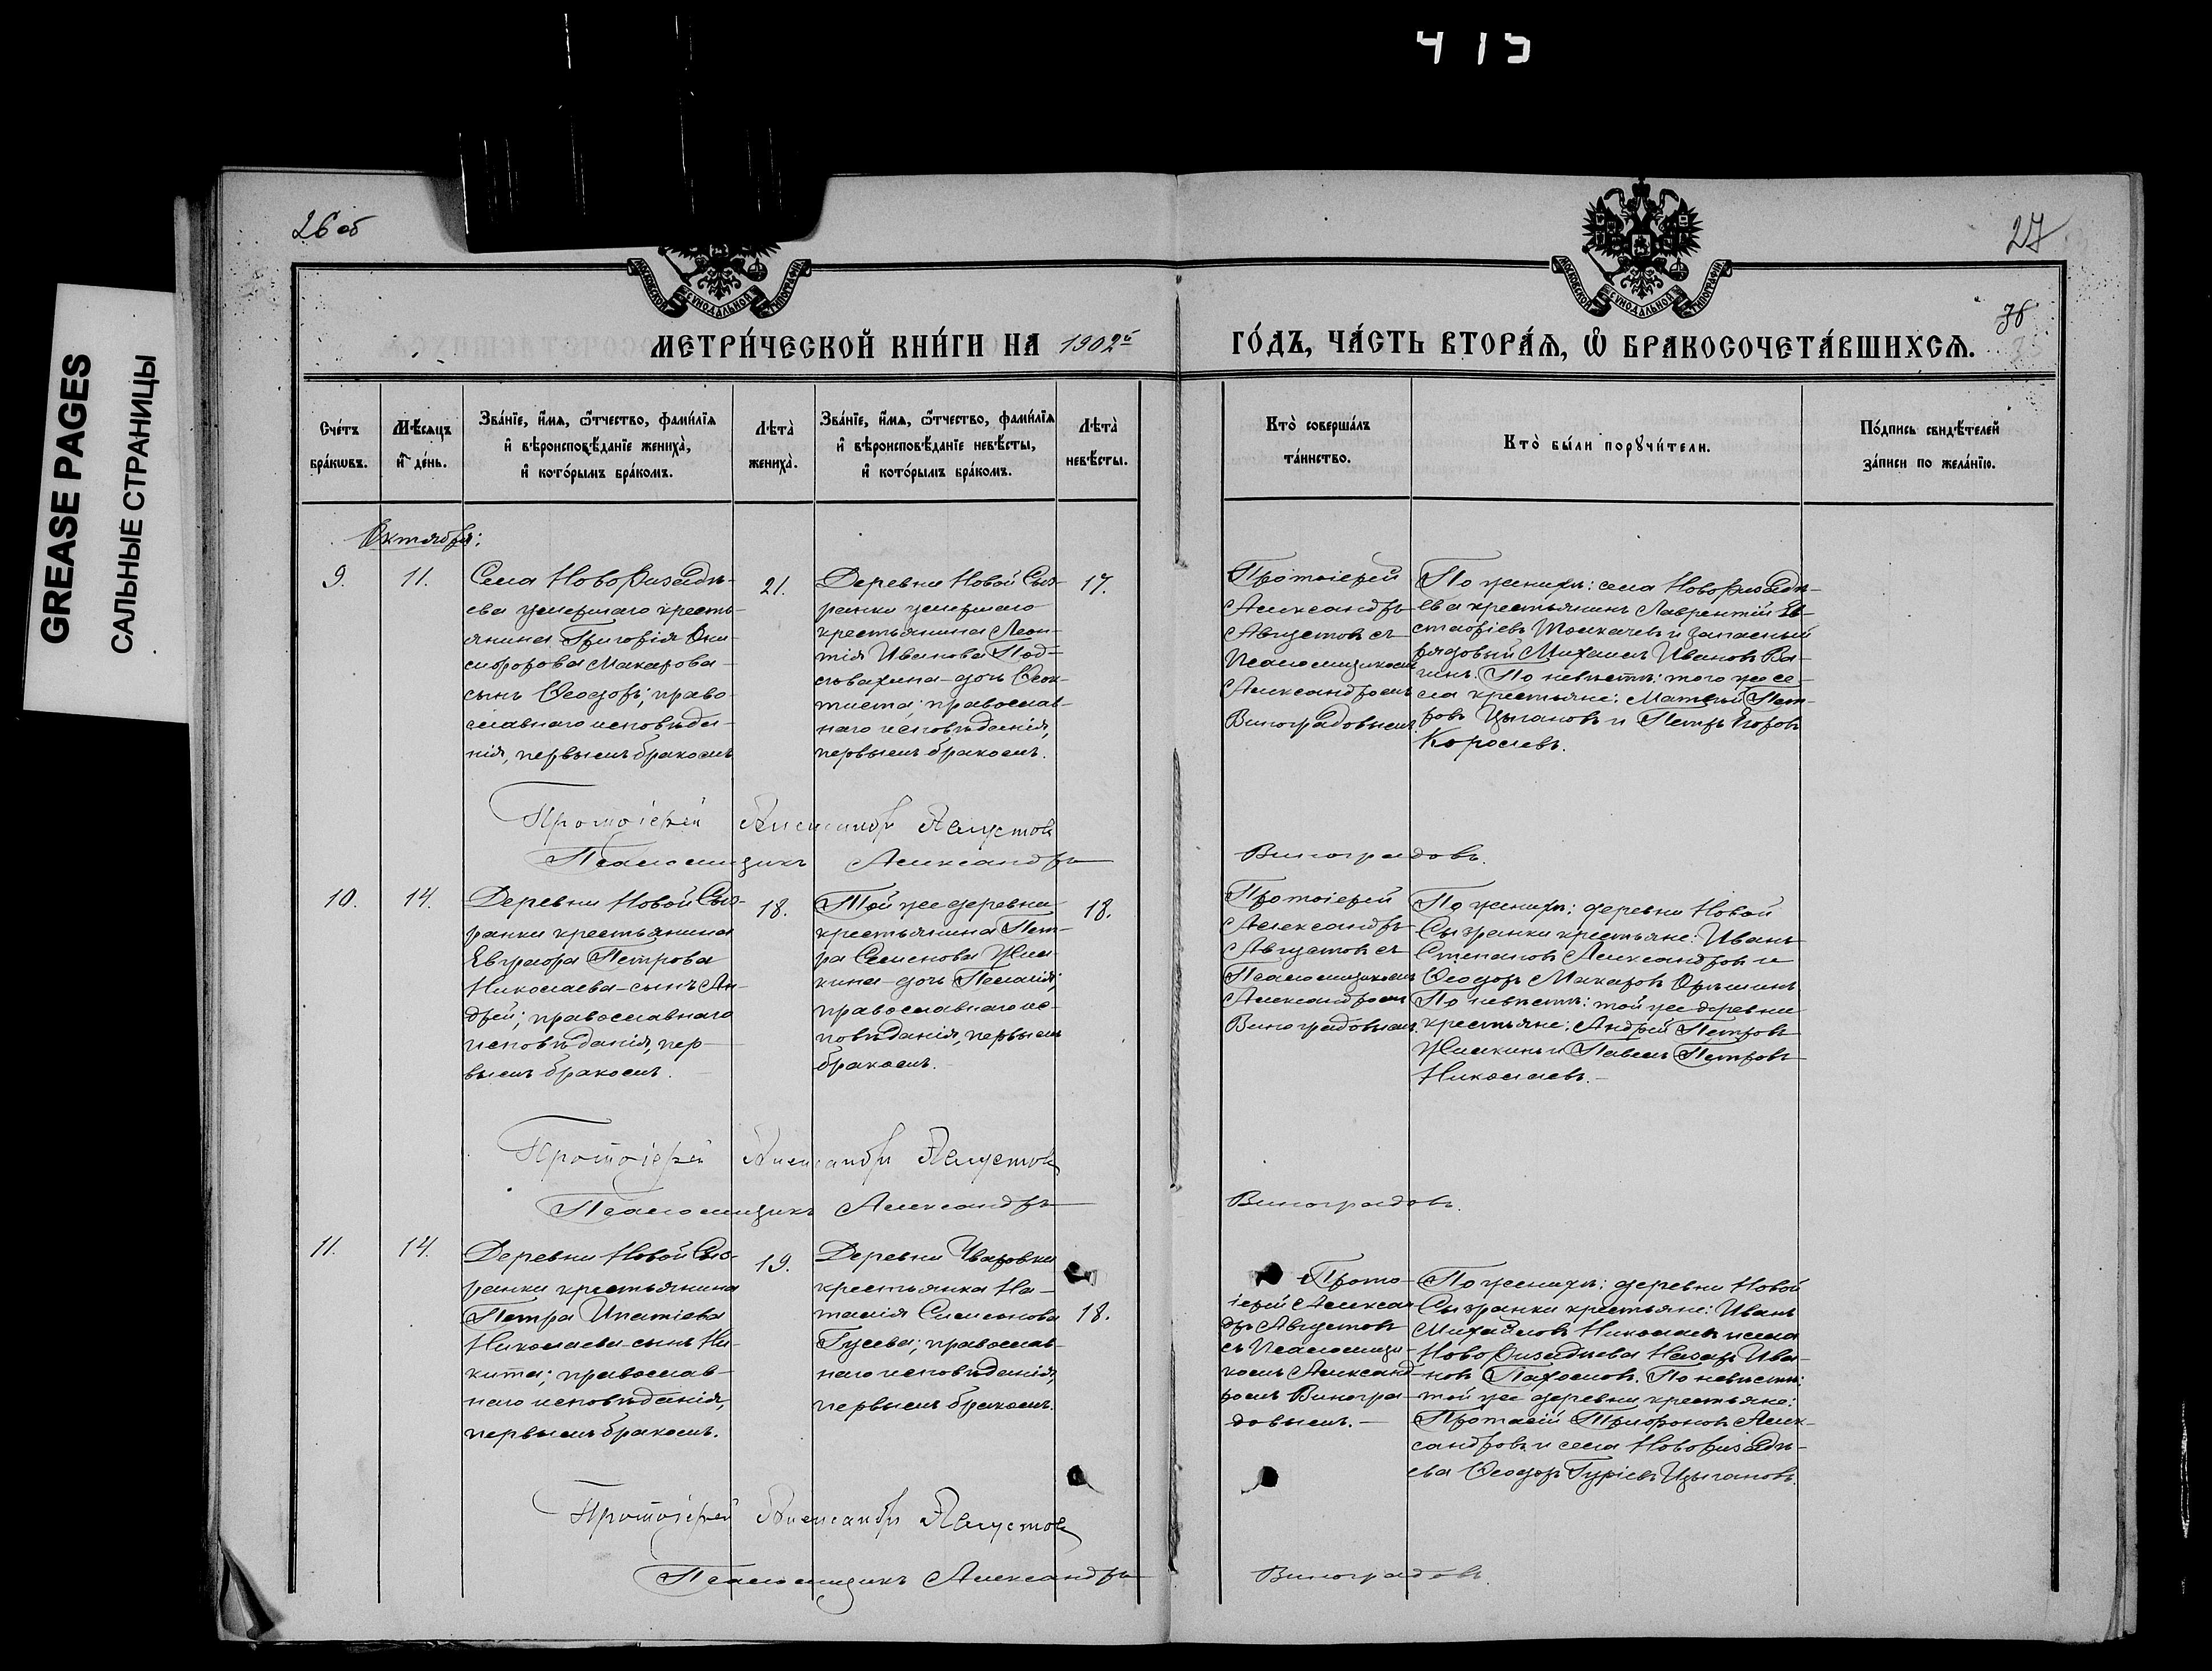 415
GREASE PAGES
САЛЬНЫЕ СТРАНИЦЫ
26 об
27
36
МОСКОВСКОЙ СѴНОДАЛЬНОЙ ТИПОГРАФІИ
МОСКОВСКОЙ СѴНОДАЛЬНОЙ ТИПОГРАФІИ
МЕТРИ́ЧЕСКОЙ КНИ́ГИ НА 1902й
ГО́ДЪ, ЧА́СТЬ ВТОРА́Я, Ѽ БРАКОСОЧЕТА́ВШИХСЯ.
Сче́тъ
бра́кωвъ.
Мѣ́сяцъ
и҆ де́нь.
Зва́нїе, и҆́мя, ѻ҆́тчество, фами́лїя
и҆ вѣроисповѣ́данїе жениха̀,
и҆ кото́рымъ бра́комъ.
Лѣта̀
жениха̀.
Зва́нїе, и҆́мя, ѻ҆́тчество, фами́лїя
и҆ вѣроисповѣ́данїе невѣ́сты,
и҆ кото́рымъ бра́комъ.
Лѣта̀
невѣ́сты.
Кто̀ соверша́лъ
та́инство.
Кто̀ бы́ли порꙋчи́тели.
По́дпись свидѣ́телей
за́писи по жела́нїю.
Октября:
9.
11.
Села Новоризадѣ-
ева умершаго кресть-
янина Григорія Они-
сифорова Макарова
сынъ Ѳеодоръ; право-
славнаго исповѣда-
нія, первымъ бракомъ
21.
Деревни Новой Сыз-
ранки умершаго
крестьянина Леон-
тія Иванова
дочь Ѳеок-
тиста; православ-
наго исповѣданія,
первымъ бракомъ.
17.
Протоіерей
Александръ
Августовъ съ
Псаломщикомъ
Александромъ
Виноградовымъ.
По женихѣ: села Новоризадѣ-
ева крестьянинъ Лаврентій Ев-
стафіевъ Толкачевъ и запасный
рядовый Михаилъ Ивановъ Ва-
гинъ. По невѣстѣ: того же се-
ла крестьяне: Матвѣй Пет-
ровъ Цыгановъ и Петръ Егоровъ
Королевъ.
Протоіерей Александръ Августовъ
Псаломщикъ Александръ Виноградовъ.
10.
14.
Деревни Новой Сыз-
ранки крестьянина
Евграфа Петрова
Николаева-сынъ Ан-
дрей; православнаго
исповѣданія, пер-
вымъ бракомъ.
18.
Той же деревни
крестьянина Пет-
ра Семенова Жил-
кина-дочь Пелагія;
православнаго ис-
повѣданія, первымъ
бракомъ.
18.
Протоіерей
Александръ
Августовъ съ
Псаломщикомъ
Александромъ
Виноградовымъ.
По женихѣ: деревни Новой
Сызранки крестьяне: Иванъ
Степановъ Александровъ и
Ѳеодоръ Макаровъ Орѣшинъ
По невѣстѣ: той же деревни
крестьяне: Андрей Петровъ
Жилкинъ и Павелъ Петровъ
Николаевъ.-
Протоіерей Александръ Августовъ
Псаломщикъ Александръ Виноградовъ.
11.
14.
Деревни Новой Сыз-
ранки крестьянина
Петра Ипатіева
Николаева-сынъ Ни-
кита; православ-
наго исповѣданія,
первымъ бракомъ.
19.
Деревни Уваровки
крестьянка На-
талія Симонова
Гусева; православ-
наго исповѣданія,
первымъ бракомъ.
18.
Прото-
іерей Алексан-
дръ Августовъ
съ Псаломщи-
комъ Александ-
ромъ Виногра-
довымъ.-
По женихѣ: деревни Новой
Сызранки крестьяне: Иванъ
Михайловъ Николаевъ и села
Новоризадѣева Назаръ Ива-
новъ Пахомовъ. По невѣстѣ:
той же деревни крестьяне:
Протасій Трифоновъ Алек-
сандровъ и села Новоризадѣ-
ева Ѳеодоръ Гуріевъ Цыгановъ.
Протоіерей Александръ Августовъ
Псаломщикъ Александръ Виноградовъ.